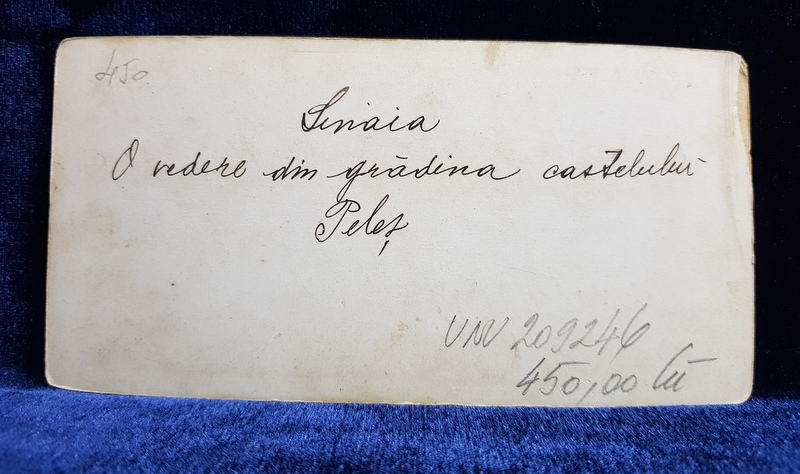 450
Sinaia
O vedere din grădina castelului
Peleș
UNV 209246
450,00 lei